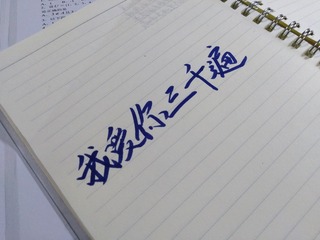 我爱你三千遍